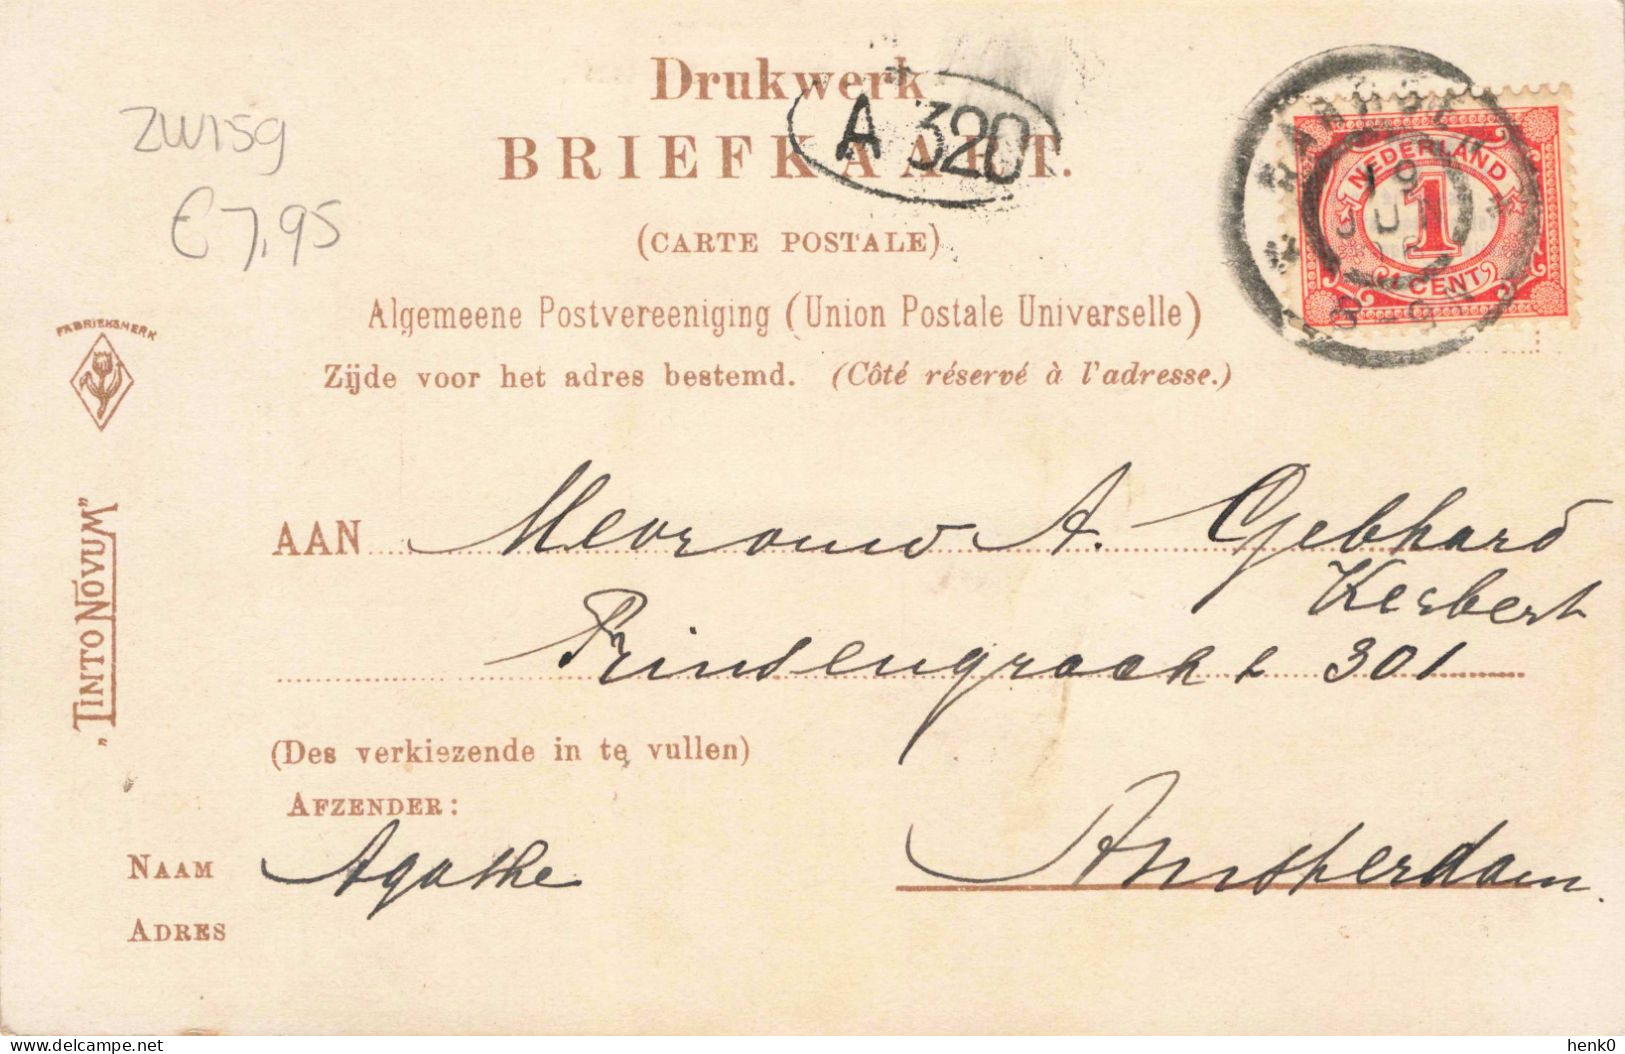 Drukwerk
A 320
BRIEFKAART.
(CARTE POSTALE)
Algemeene Postvereeniging (Union Postale Universelle)
Zijde voor het adres bestemd. (Côté réservé à l'adresse.)
zwisg
€7,95
NEDERLAND
1
CENT
19
JUN
8-9
FABRIEKSMERK
"TINTO NOVUM"
AAN Mevrouw A. Gebhard
Kerbert
Prinsengracht 301
Amsterdam.
(Des verkiezende in te vullen)
AFZENDER:
NAAM Agathe
ADRES
delcampe.net
henk0